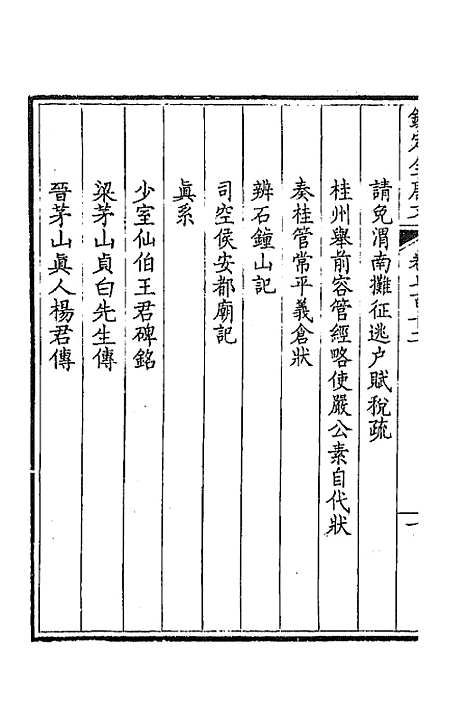 欽定全唐文
卷七百十二
一
請免渭南攤征逃户賦稅疏
桂州舉前容管經略使嚴公素自代狀
奏桂管常平義倉狀
辨石鐘山記
司空侯安都廟記
眞系
少室仙伯王君碑銘
梁茅山貞白先生傳
晉茅山眞人楊君傳